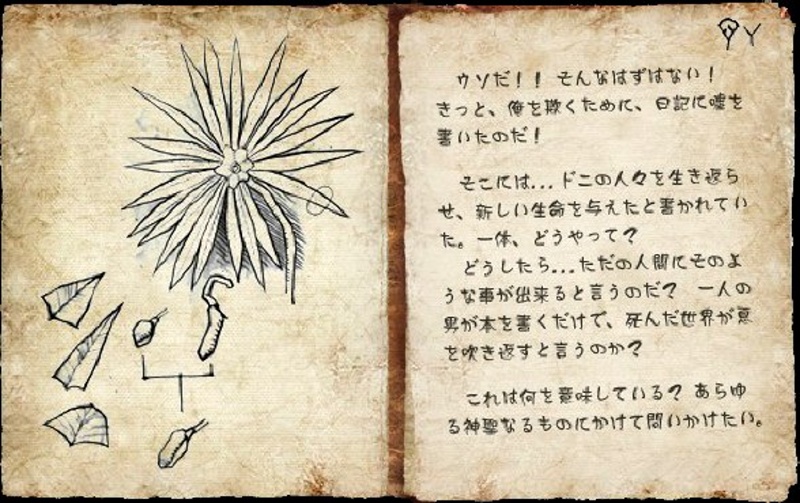 ウソだ!! そんなはずはない!
きっと、俺を欺くために、日記に嘘を
書いたのだ!
そこには... ドニの人々を生き返ら
せ、新しい生命を与えたと書かれてい
た。一体、どうやって?
どうしたら...ただの人間にそのよ
うな事が出来ると言うのだ? 一人の
男が本を書くだけで、死んだ世界が息
を吹き返すと言うのか?
これは何を意味している? あらゆ
る神聖なるものにかけて問いかけたい。